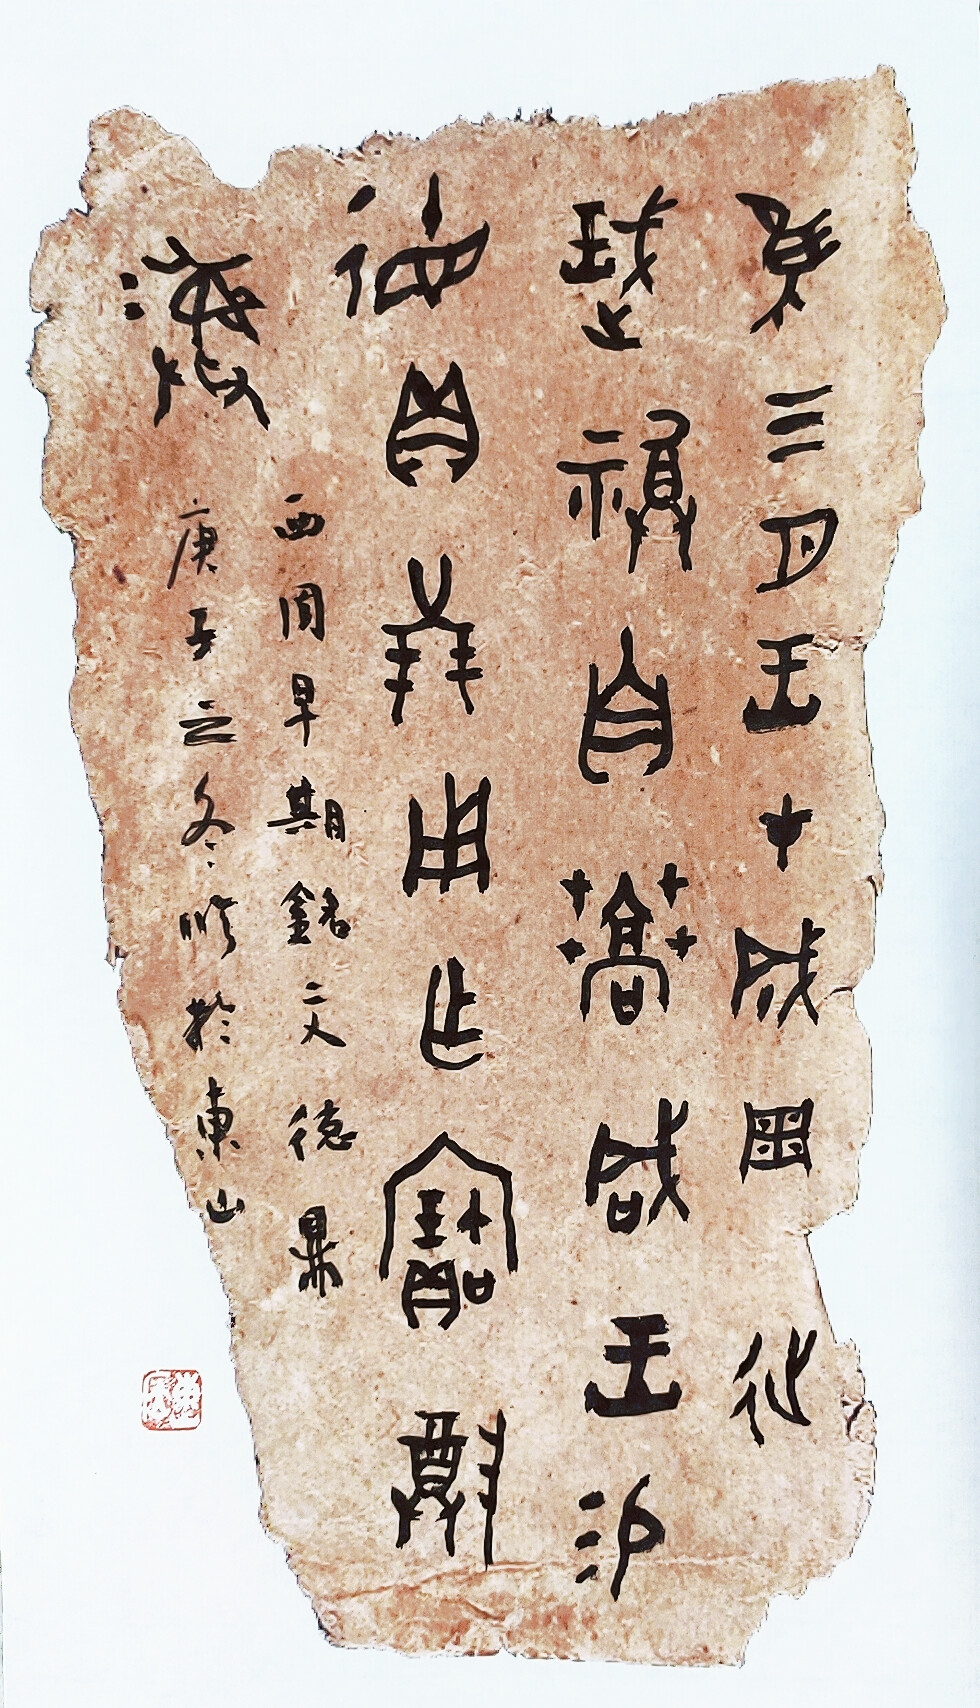 隹三月王才成周延
珷祼自蒿咸王易
徝貝廿朋用乍寶尊
彝
西周早期銘文德鼎
庚子之冬於東山